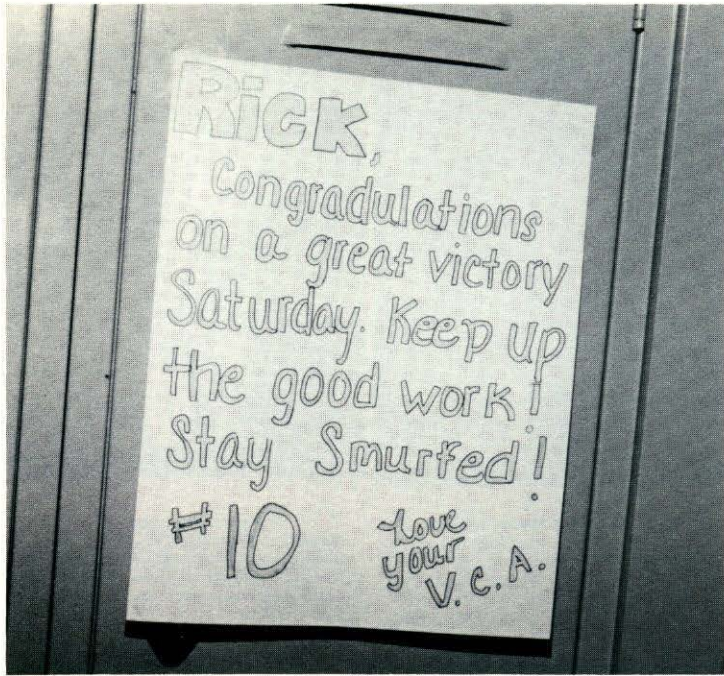 Rick,
Congradulations
on a great victory
Saturday. Keep up
the good work!
Stay Smurfed!
#10
Love
your
V.C.A.